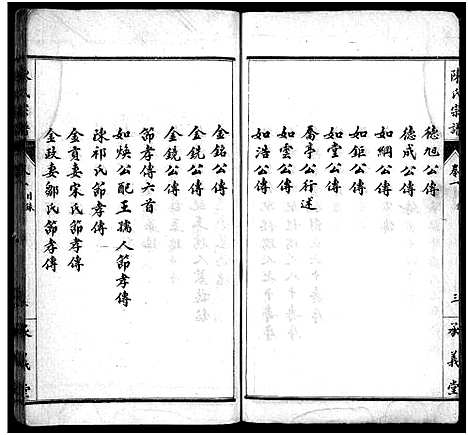 陳氏宗譜
卷一
三
承義堂
德旭公傳
德成公傳
如綱公傳
如鉅公傳
如堂公傳
喬亭公行述
如雲公傳
如浩公傳
金鉛公傳
金銑公傳
金鏡公傳
節孝傳六首
如煥公配王孺人節孝傳
陳祁氏節孝傳
金貢妻宋氏節孝傳
金政妻鄒氏節孝傳
目錄
承義堂